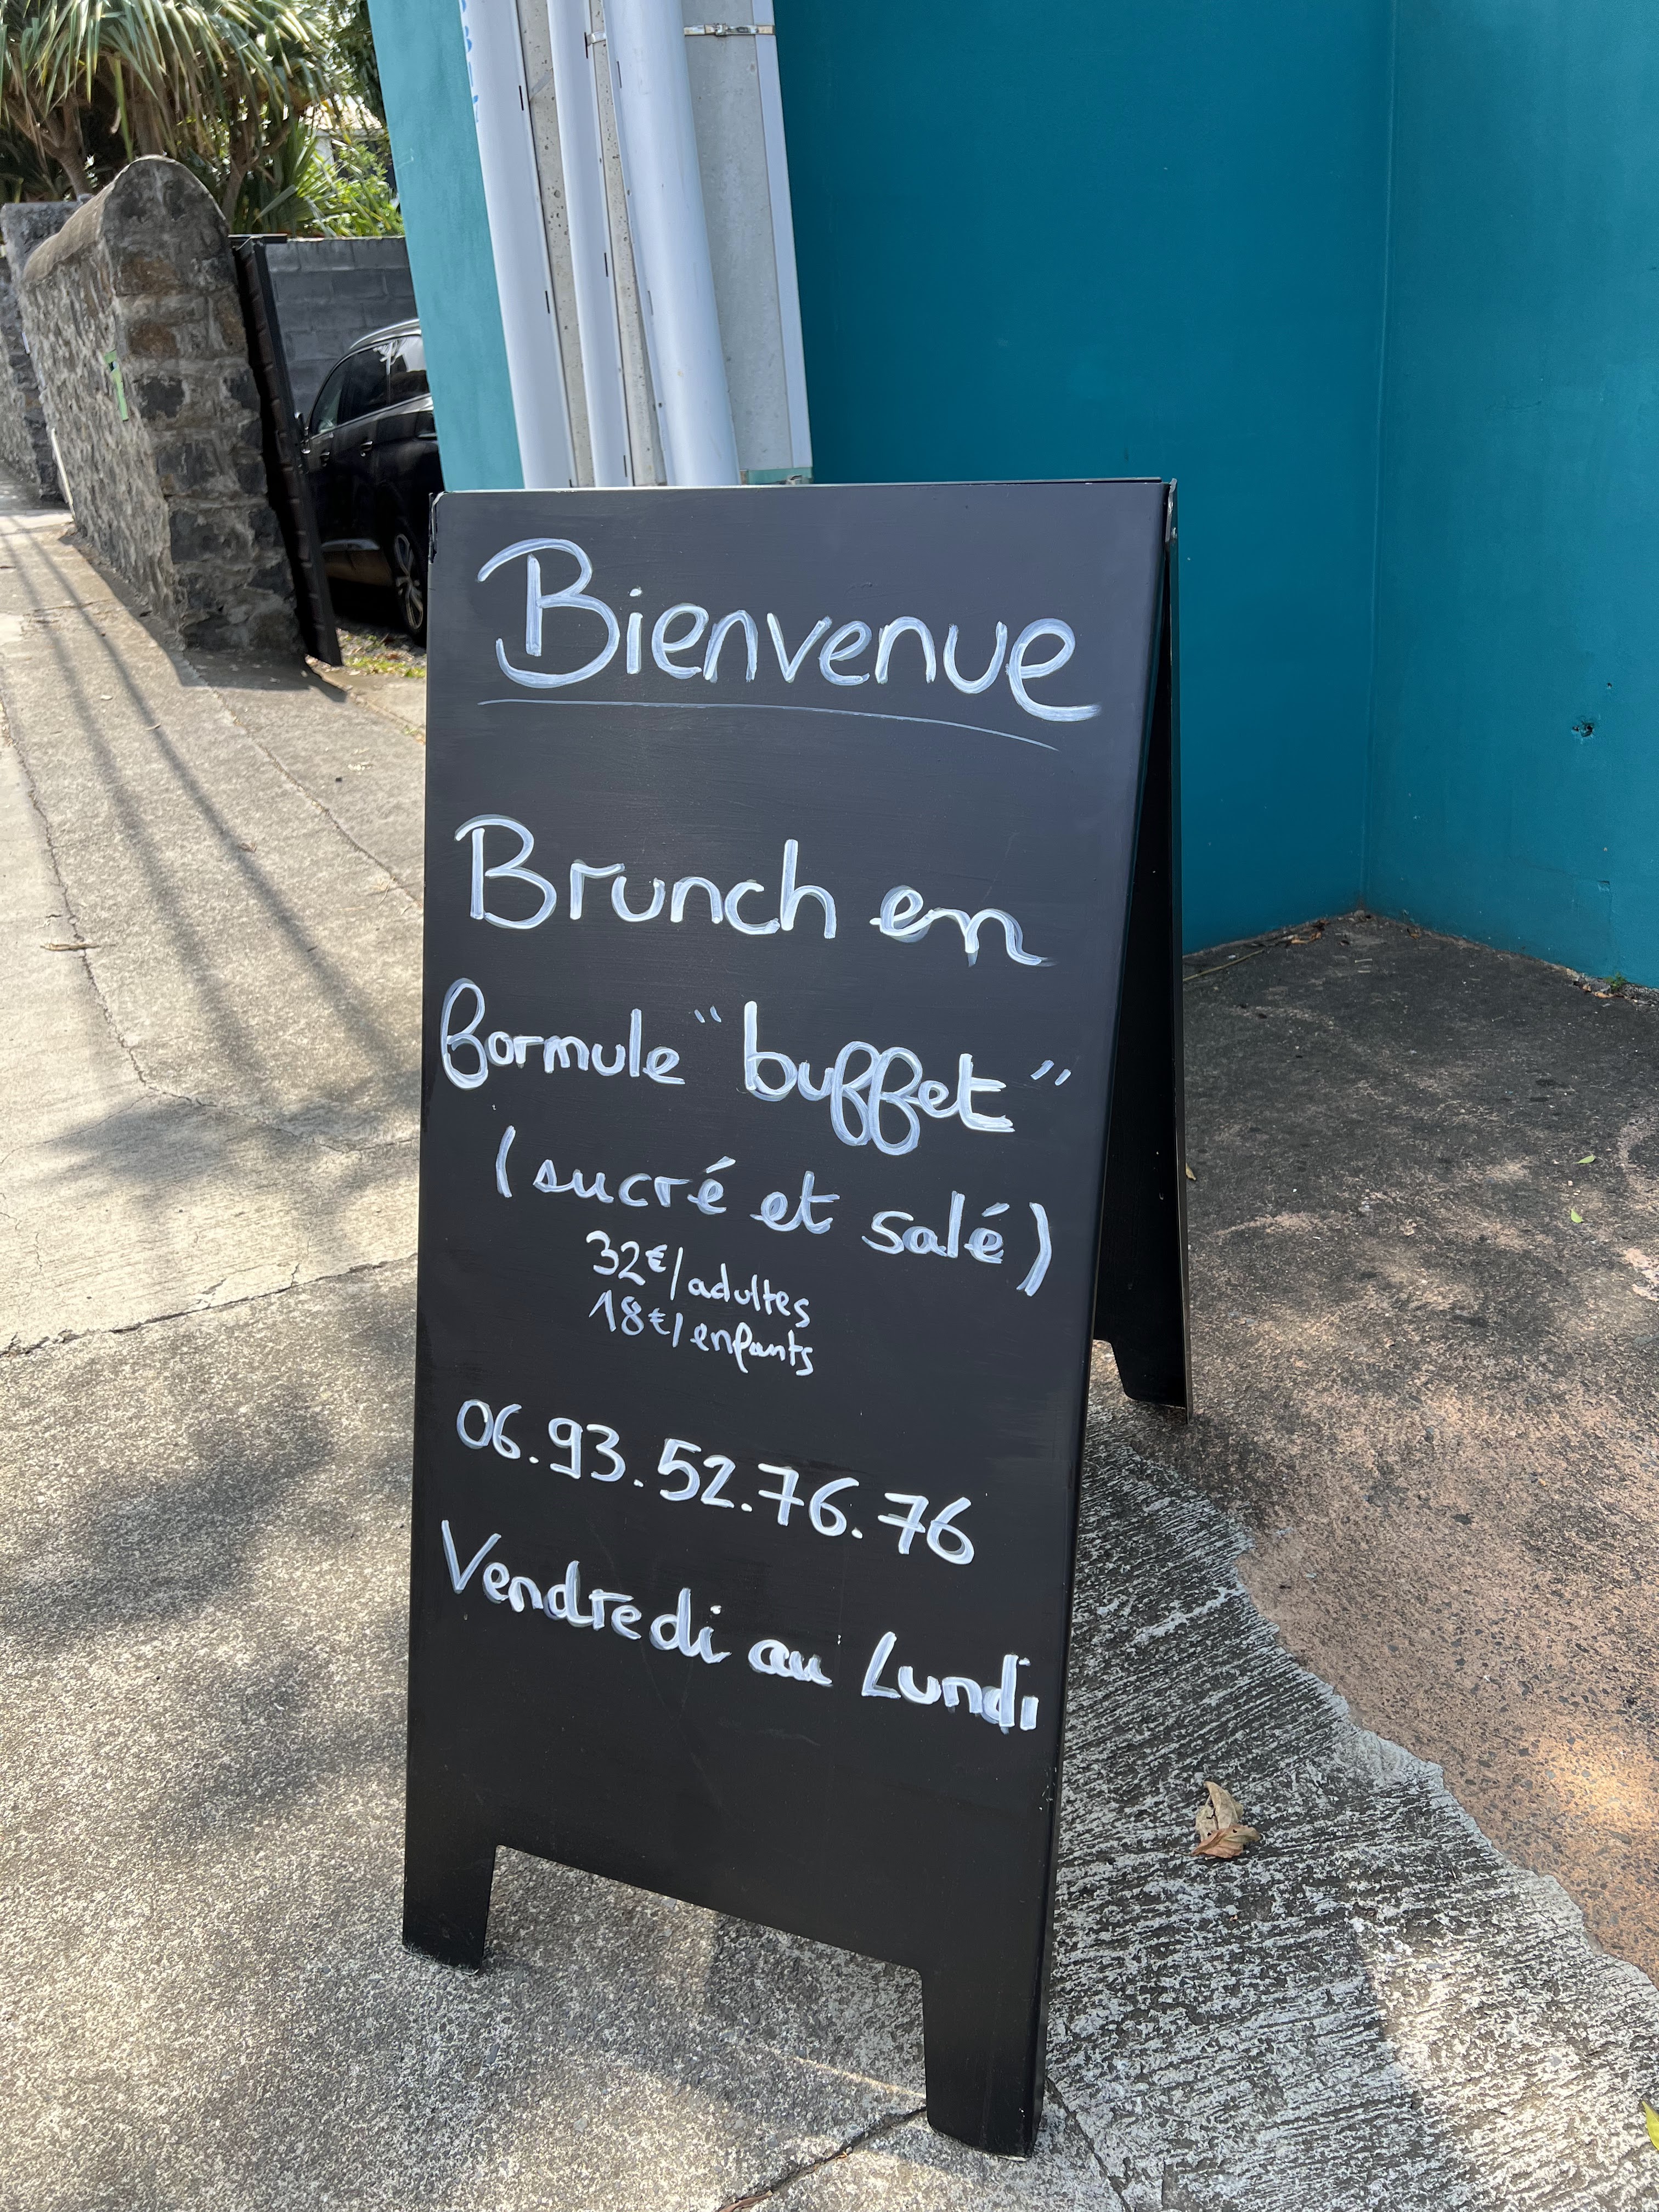 Bienvenue
Brunch en
formule "buffet"
(sucré et salé)
32€/adultes
18€/enfants
06.93.52.76.76
Vendredi au Lundi